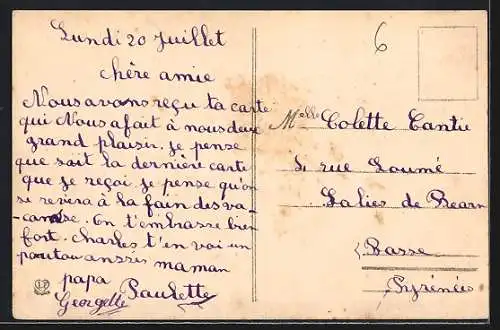 Lundi 20 Juillet
chère amie
Nous avons reçu ta carte
qui Nous a fait à nous deux
grand plaisir. je pense
que sait la dernière carte
que je reçoi. je pense qu'on
se revera à la fain des va-
-canse. On t'embrasse bien
fort. Charles t'en voi un
poutou ansi maman
papa Paulette
Georgette
6
Melle Colette Cantié
rue Loumé
Salies de Bearn
Basse
Pyrénées